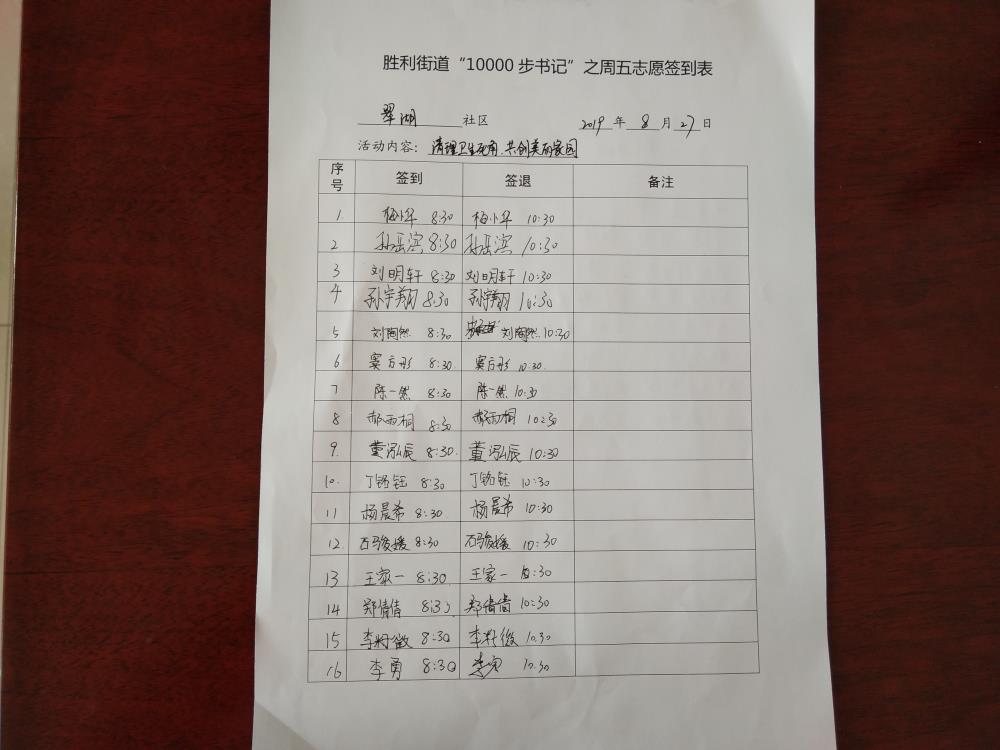 胜利街道“10000步书记”之周五志愿签到表
翠湖 社区 2019 年 8 月 27 日
活动内容：清理卫生死角，共创美丽家园
序号 签到 签退 备注
1. 梅小华 8:30 梅小华 10:30
2 孙岳滨 8:30 孙岳滨 10:30
3 刘明轩 8:30 刘明轩 10:30
4 孙宇翔 8:30 孙宇翔 10:30
5 刘陶然 8:30 刘陶然 10:30
6 窦方彤 8:30 窦方彤 10:30
7 陈一然 8:30 陈一然 10:30
8 郝雨桐 8:30 郝雨桐 10:30
9. 董泓辰 8:30 董泓辰 10:30
10. 丁铭钰 8:30 丁铭钰 10:30
11 杨晨希 8:30 杨晨希 10:30
12. 石骏媛 8:30 石骏媛 10:30
13 王家一 8:30 王家一 :30
14 郑倩倩 8:30 郑倩倩 10:30
15 李 8:30 李 10.30
16 李勇 8:30 李勇 10.30